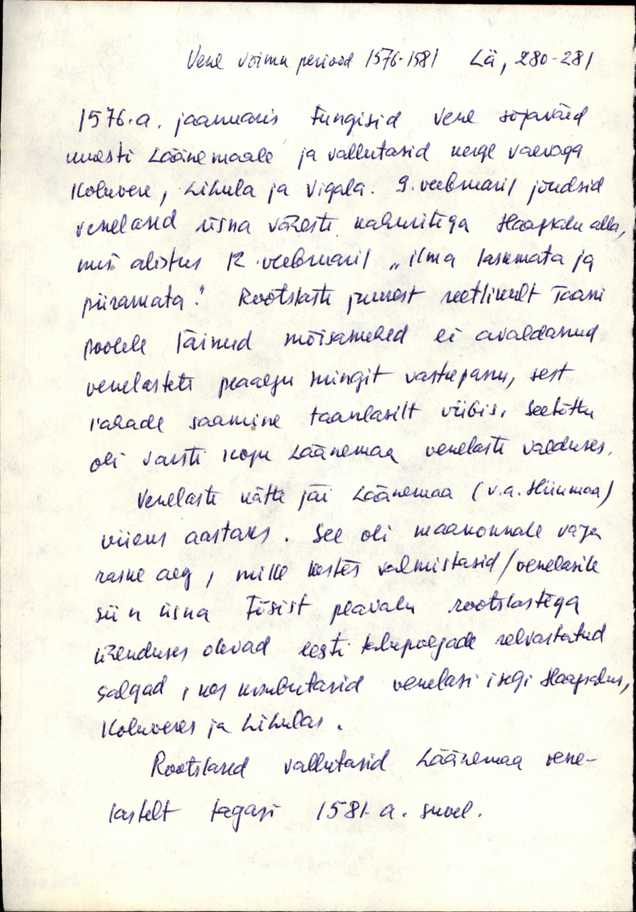 Vene võimu periood 1576-1581 Lä, 280-281
1576.a. jaanuaris tungisid vene sõjaväed
uuesti Läänemaale ja vallutasid kerge vaevaga
Koluvere, Lihula ja Vigala. 9. veebruaril jõudsid
venelased üsna väheste kahuritega Haapsalu alla,
mis alistus 12. veebruaril „ilma laskmata ja
piiramata." Rootslaste juurest reetlikult Taani
poolele läinud mõisamehed ei avaldanud
venelastele peaaegu mingit vastupanu, sest
rahade saamine taanlasilt viibis. Seetõttu
oli varsti kogu Läänemaa venelaste valduses.
Venelaste kätte jäi Läänemaa (v.a. Hiiumaa)
viieks aastaks. See oli maakonnale väga
raske aeg, mille kestes valmistasid/venelasile
siin üsna tõsist peavalu rootslastega
ühenduses olevad eesti talupoegade relvastatud
salgad, kes kimbutasid venelasi isegi Haapsalus,
Koluveres ja Lihulas.
Rootslased vallutasid Läänemaa vene-
lastelt tagasi 1581.a. suvel.